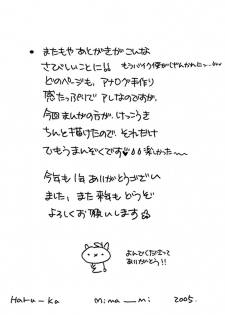 • またもや あとがきが こんな
さびしいことに!! もうバイク便がじぜんかれたっ…
どのページも、アナログ手作り
感たっぷりで アレなのですが、
今回まんがの方が、けっこうき
ちんと描けたので、それだけ
でもうまんぞくです 楽しかった〜
今年も1年ありがとうござい
ました。また来年も どうぞ
よろしくお願いします
よんでくださって
ありがとう!!
Haru-ka mima_mi 2005.